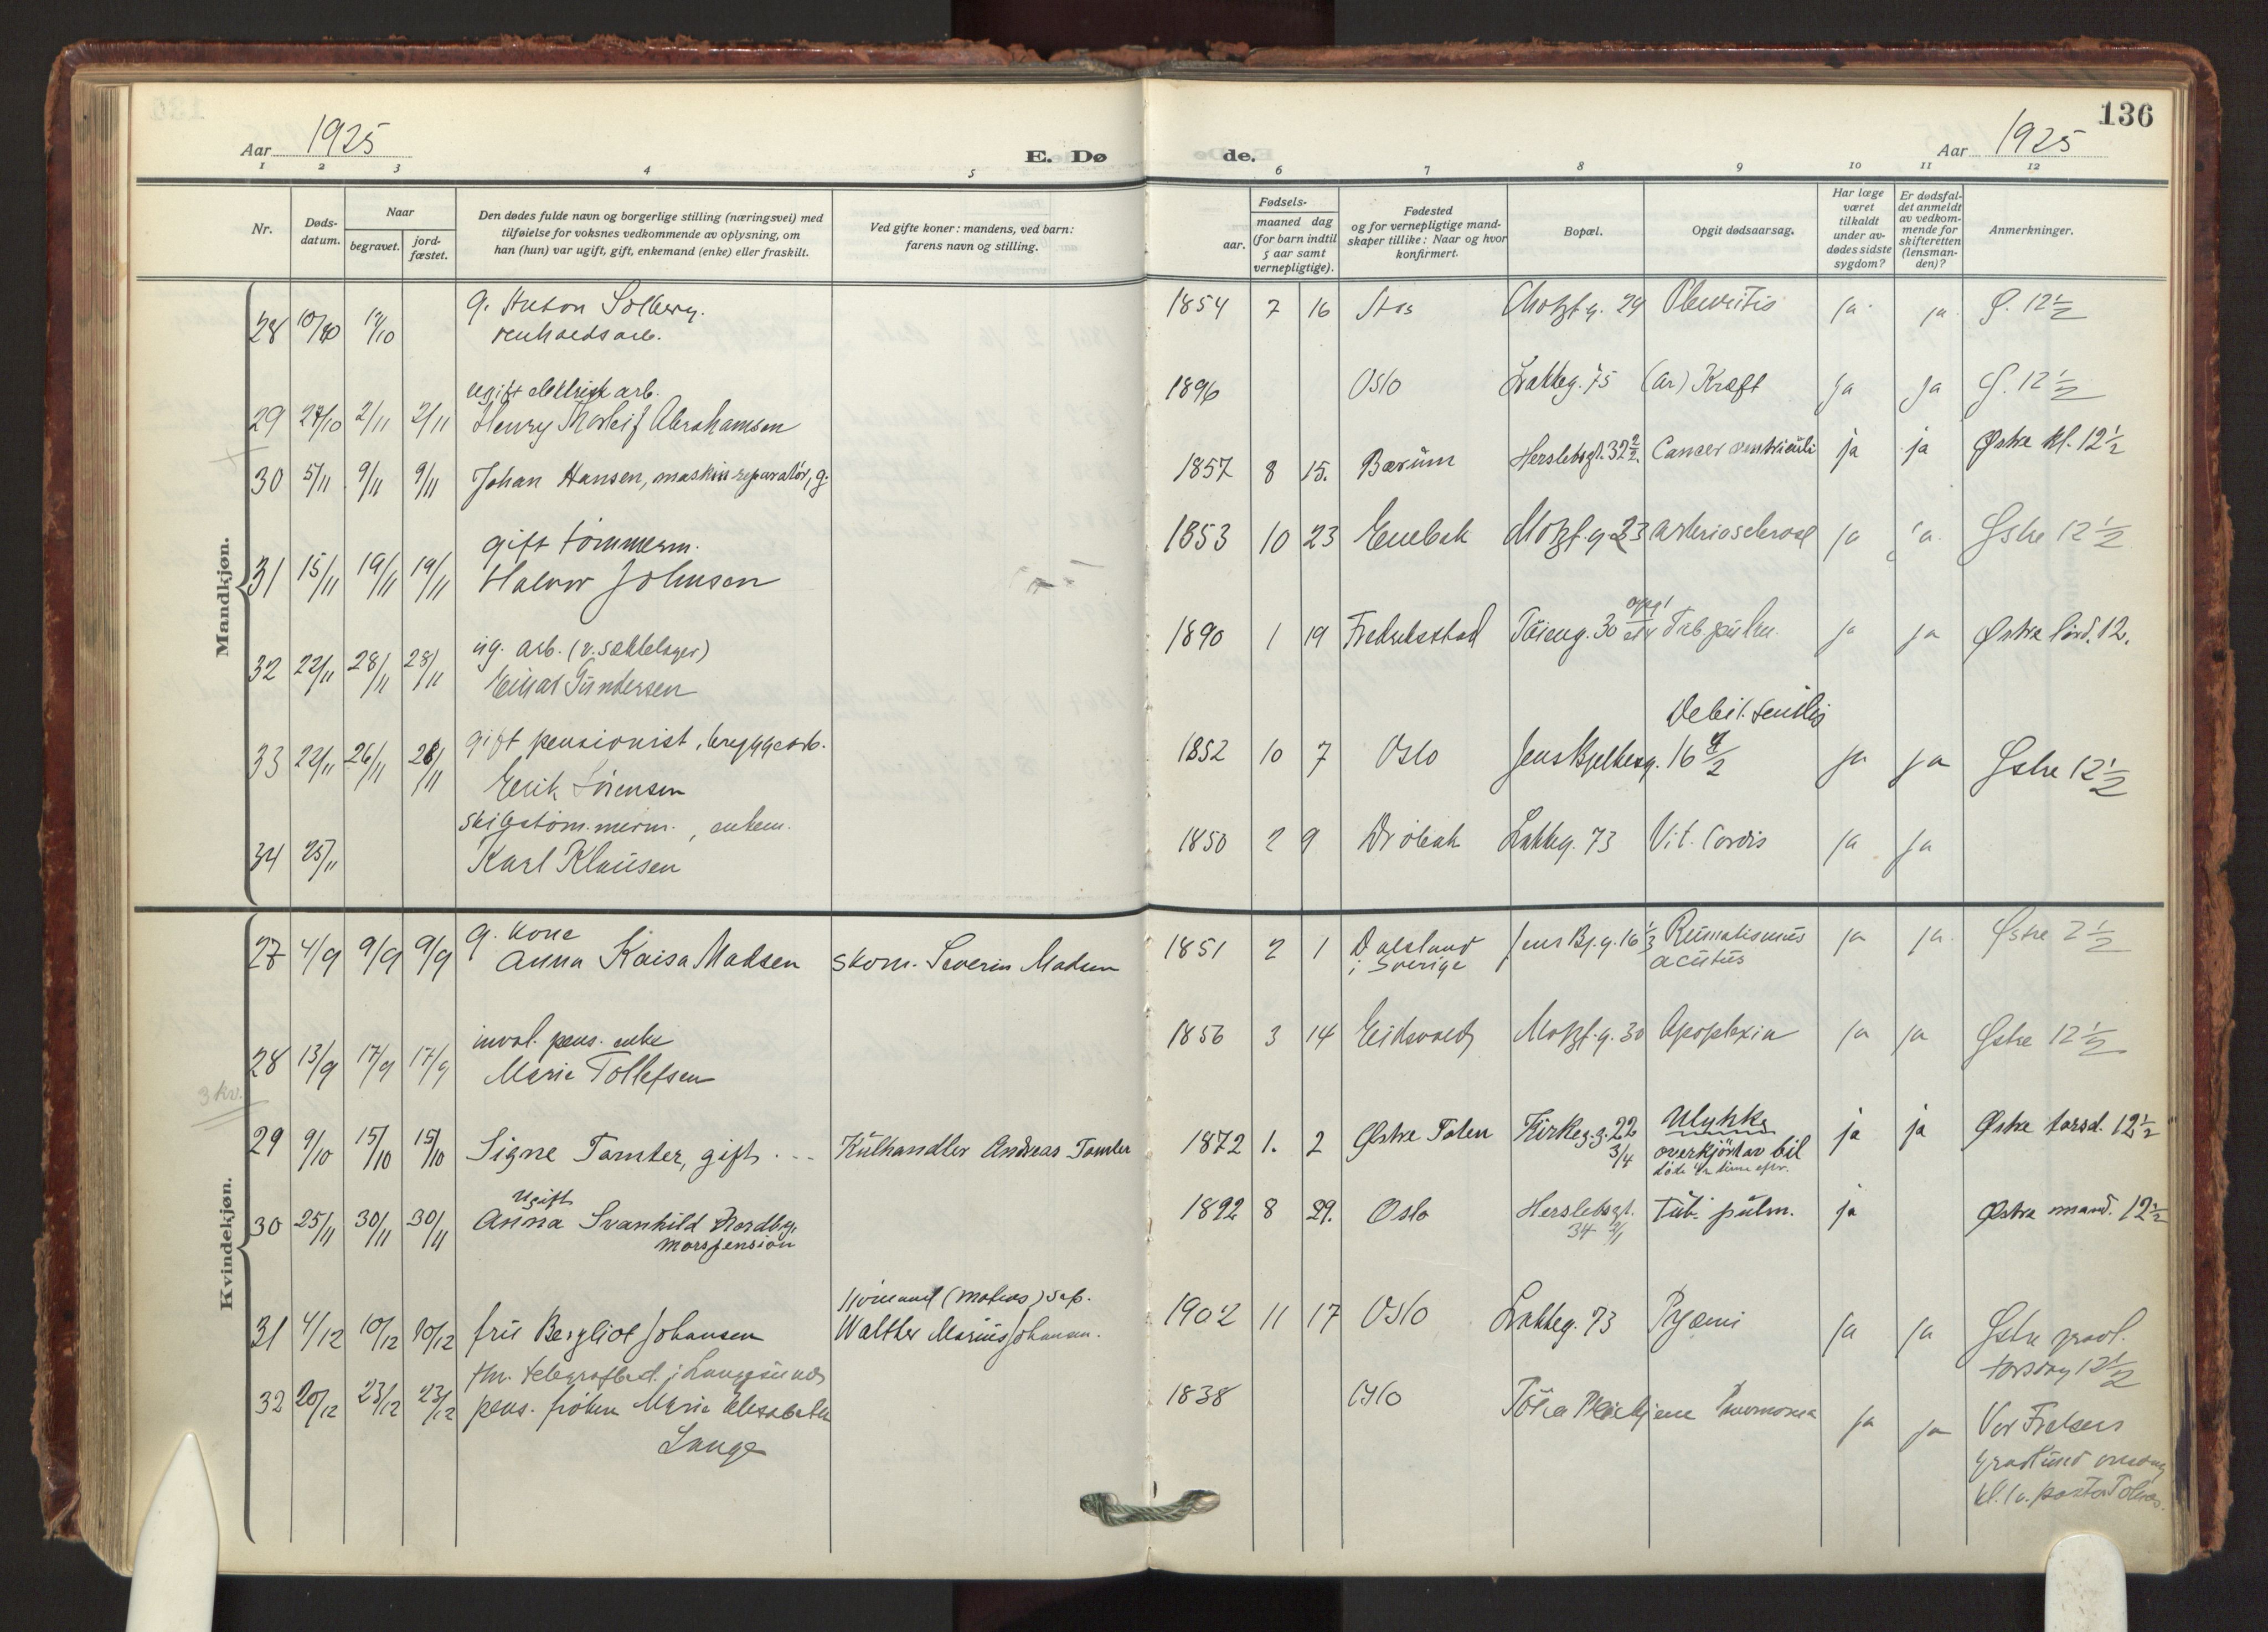 136
Aar 1925
E. Dø
de.
Aar 1925
1 2 3 4 5 6 7 8 9 10 11 12
Nr.
Døds-
datum.
Naar
begravet.
jord-
fæstet.
Den dødes fulde navn og borgerlige stilling (næringsvei) med
tilføielse for voksnes vedkommende av oplysning, om
han (hun) var ugift, gift, enkemand (enke) eller fraskilt.
Ved gifte koner: mandens, ved barn:
farens navn og stilling.
Fødsels-
aar.
maaned dag
(for barn indtil
5 aar samt
vernepligtige).
Fødested
og for vernepligtige mand-
skaper tillike: Naar og hvor
konfirmert.
Bopæl.
Opgit dødsaarsag.
Har læge
været
tilkaldt
under av-
dødes sidste
sygdom?
Er dødsfal-
det anmeldt
av vedkom-
mende for
skifteretten
(lensman-
den)?
Anmerkninger.
Mandkjøn.
28 10/10 14/10 g. Anton Solberg. 1854 7 16 Motzf.g. 24 ja ja Ø. 12 1/2
renholdsarb.
ugift elektrisk arb. 1896 Oslo Lakkeg. 75 (ar) Kræft ja ja Ø. 12 1/2
29 27/10 2/11 2/11 Henry Thorleif Abrahamsen
30 5/11 9/11 9/11 Johan Hansen, maskin-reparatör, g. 1857 8 15. Bærum Herslebsgt. 32 2/2 Cancer ventriculi ja ja Østre kl. 12 1/2
gift tømmerm. 1853 10 23 Enebak Motzf.g. 23 Arteriosclerose ja ja Østre 12 1/2
31 15/11 19/11 19/11 Halvor Johnsen
ug. arb. (v. sækkelager) 1890 1 19 Fredrikstad Töieng. 30 Tub. pulm. ja ja Østre lørd. 12.
32 22/11 28/11 28/11 Einar Gundersen
Debil. senilis
gift pensionist, bryggearb. 1852 10 7 Oslo Jens Bjelkesg. 16 ja ja Østre 12 1/2
33 22/11 26/11 Erik Sörensen
skibstöm.merm., enkem. 1850 2 9 Dröbak Lakkeg. 73 Vit. Cordis ja ja
34 25/11 Karl Klausen
Kvindekjøn.
g. kone
27 4/9 9/9 9/9 Anna Kaisa Madsen skom. Severin Madsen 1851 2 1 Dalsland Jens Bj.g. 16 1/3 Rumatismus ja ja Østre 2 1/2
i Sverige acutus
inval. pens. enke 1856 3 14 Eidsvold Motzf.g. 30 Apoplexia ja ja Østre 12 1/2
28 13/9 17/9 17/9 Marie Tollefsen
3 kv.
29 9/10 15/10 15/10 Signe Tamter, gift Kulhandler Andreas Tamter 1872 1. 2 Østre Toten Kirkeg.g. 22 3/4 Ulykke ja ja Østre torsd. 12 1/2
overkjört av bil
ugift
30 25/11 30/11 30/11 Anna Svanhild Nordbg. 1892 8 29. Oslo Herslebsgt. Tub. pulm. ja Østre mand. 12 1/2
morspension 34 2/1
31 4/12 10/12 10/12 fru Bergliot Johansen Walther Marius Johansen. 1902 11 17 Oslo Lakkeg. 73 Pyæmi ja ja Østre gravl.
torsdag 12 1/2
fhv. telegrafbest. i Langesund
32 20/12 23/12 23/12 pens. fröken Marie Elisabeth 1838 Oslo Töien Pleiehjem Pneumonia ja ja Vor Frelsers
Lange
gravlund onsdag